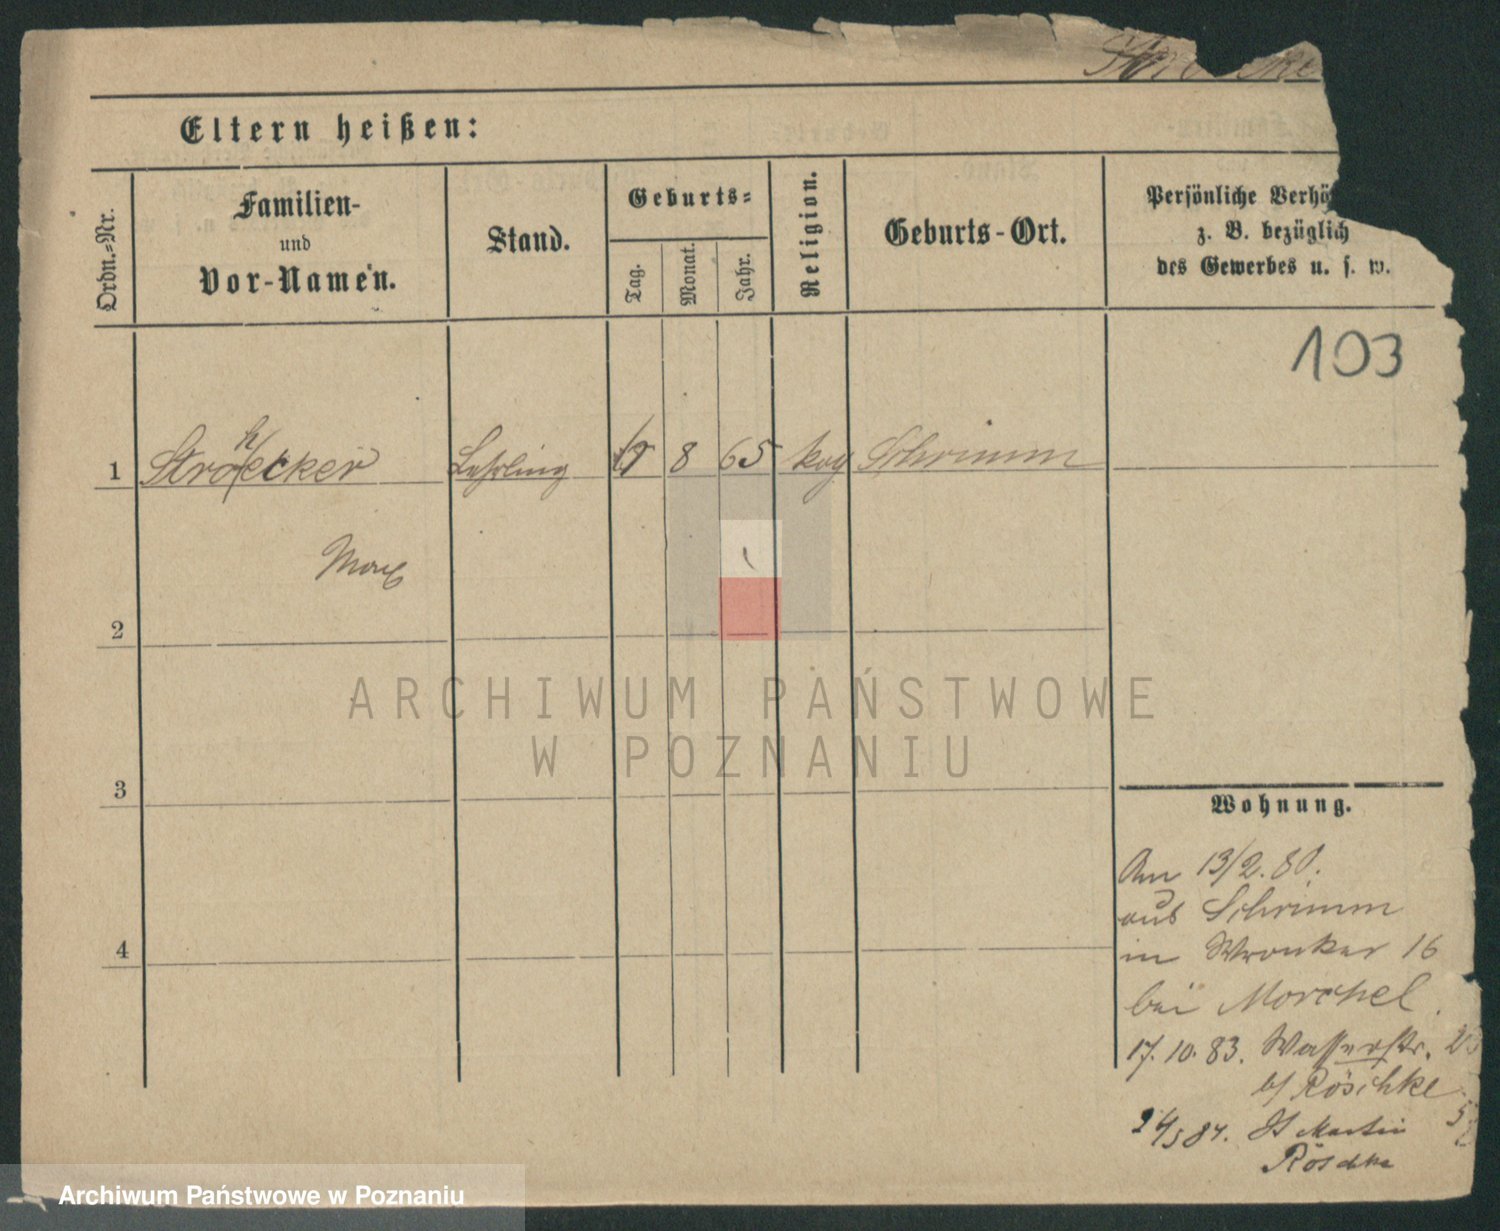 Eltern heißen:
Ordn.-Nr.
Familien-
und
Vor-Namen.
Stand.
Geburts-
Tag.
Monat.
Jahr.
Religion.
Geburts-Ort.
Persönliche Verhä
z. B. bezüglich
des Gewerbes u. s. w.
103
1 Ströhecker Lehrling 8 65 Schrimm
Max
2
ARCHIWUM PAŃSTWOWE
W POZNANIU
3
Wohnung.
Am 13/2. 80.
aus Schrimm
in Wronker 16
bei Morchel.
4
17. 10. 83. Wasserstr.
b/ Röschke
24/5 84. St Martin
Röschke
Archiwum Państwowe w Poznaniu